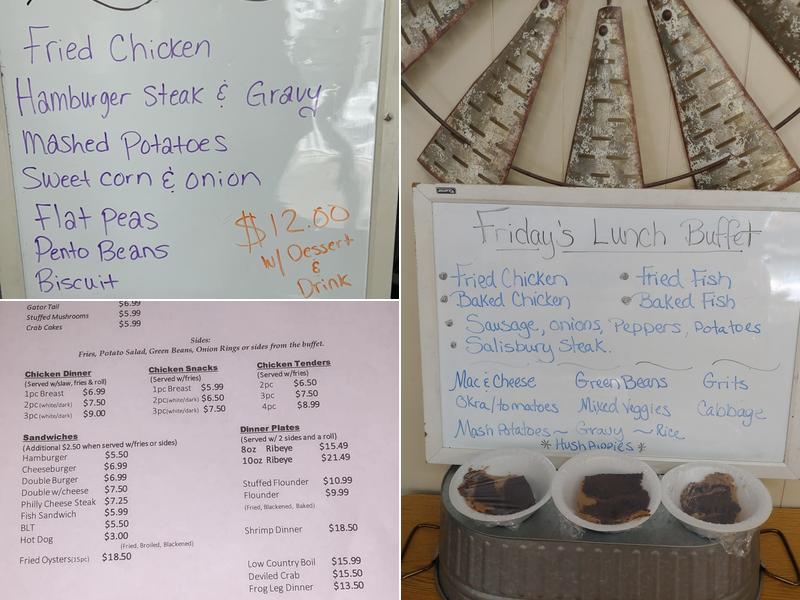 Fried Chicken
Hamburger Steak & Gravy
Mashed Potatoes
Sweet corn & onion
Flat Peas
Pento Beans
Biscuit
$12.00
w/ Dessert
&
Drink
Gator Tail $6.99
Stuffed Mushrooms $5.99
Crab Cakes $5.99
Sides:
Fries, Potato Salad, Green Beans, Onion Rings or sides from the buffet.
Chicken Dinner
(Served w/slaw, fries & roll)
1pc Breast $6.99
2pc(white/dark) $7.50
3pc(white/dark) $9.00
Chicken Snacks
(Served w/fries)
1pc Breast $5.99
2pc(white/dark) $6.50
3pc(white/dark) $7.50
Chicken Tenders
(Served w/fries)
2pc $6.50
3pc $7.50
4pc $8.99
Sandwiches
(Additional $2.50 when served w/fries or sides)
Hamburger $5.50
Cheeseburger $6.99
Double Burger $6.99
Double w/cheese $7.50
Philly Cheese Steak $7.25
Fish Sandwich $5.99
BLT $5.50
Hot Dog $3.00
(Fried, Broiled, Blackened)
Fried Oysters(15pc) $18.50
Dinner Plates
(Served w/ 2 sides and a roll)
8oz Ribeye $15.49
10oz Ribeye $21.49
Stuffed Flounder $10.99
Flounder $9.99
(Fried, Blackened, Baked)
Shrimp Dinner $18.50
Low Country Boil $15.99
Deviled Crab $15.50
Frog Leg Dinner $13.50
Friday's Lunch Buffet
Fried Chicken
Baked Chicken
Fried Fish
Baked Fish
Sausage, onions, Peppers, Potatoes
Salisbury Steak.
Mac & Cheese Green Beans Grits
Okra/tomatoes Mixed Veggies Cabbage
Mash Potatoes ~ Gravy ~ Rice
* Hush Puppies *